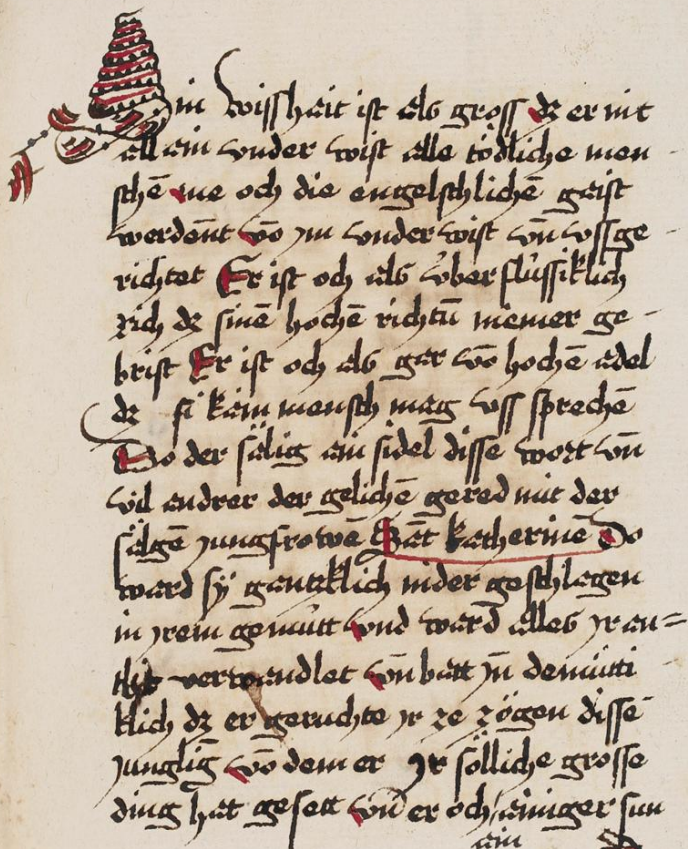 Sin wisshait ist als gross dz er nit
allain vnder wist alle tödliche men
schē me och die engelschlichē gaist
werdent vō im vnder wist vn̄ vssge
richtet Er ist och als v̓berflüssiklich
rich dz sinē hochē richtū niemer ge
brist Er ist och als gar vō hochē adel
dz si kain mensch mag vss sprechē
Do der sälig ainsidel disse wort vn̄
vil andrer der gelichē gered mit der
sälgē jungfrowē Sāt katherinē Do
ward sÿ gantzklich nider geschlagen
in jrem gemütt vnd ward alles jr an=
verwandlet vn̄ batt jn̄ demütti
klich dz er geruchte jr ze zögen disse
junglīg vō dem er jr sölliche grosse
ding hat gesett vn̄ er och ainiger sun
ain